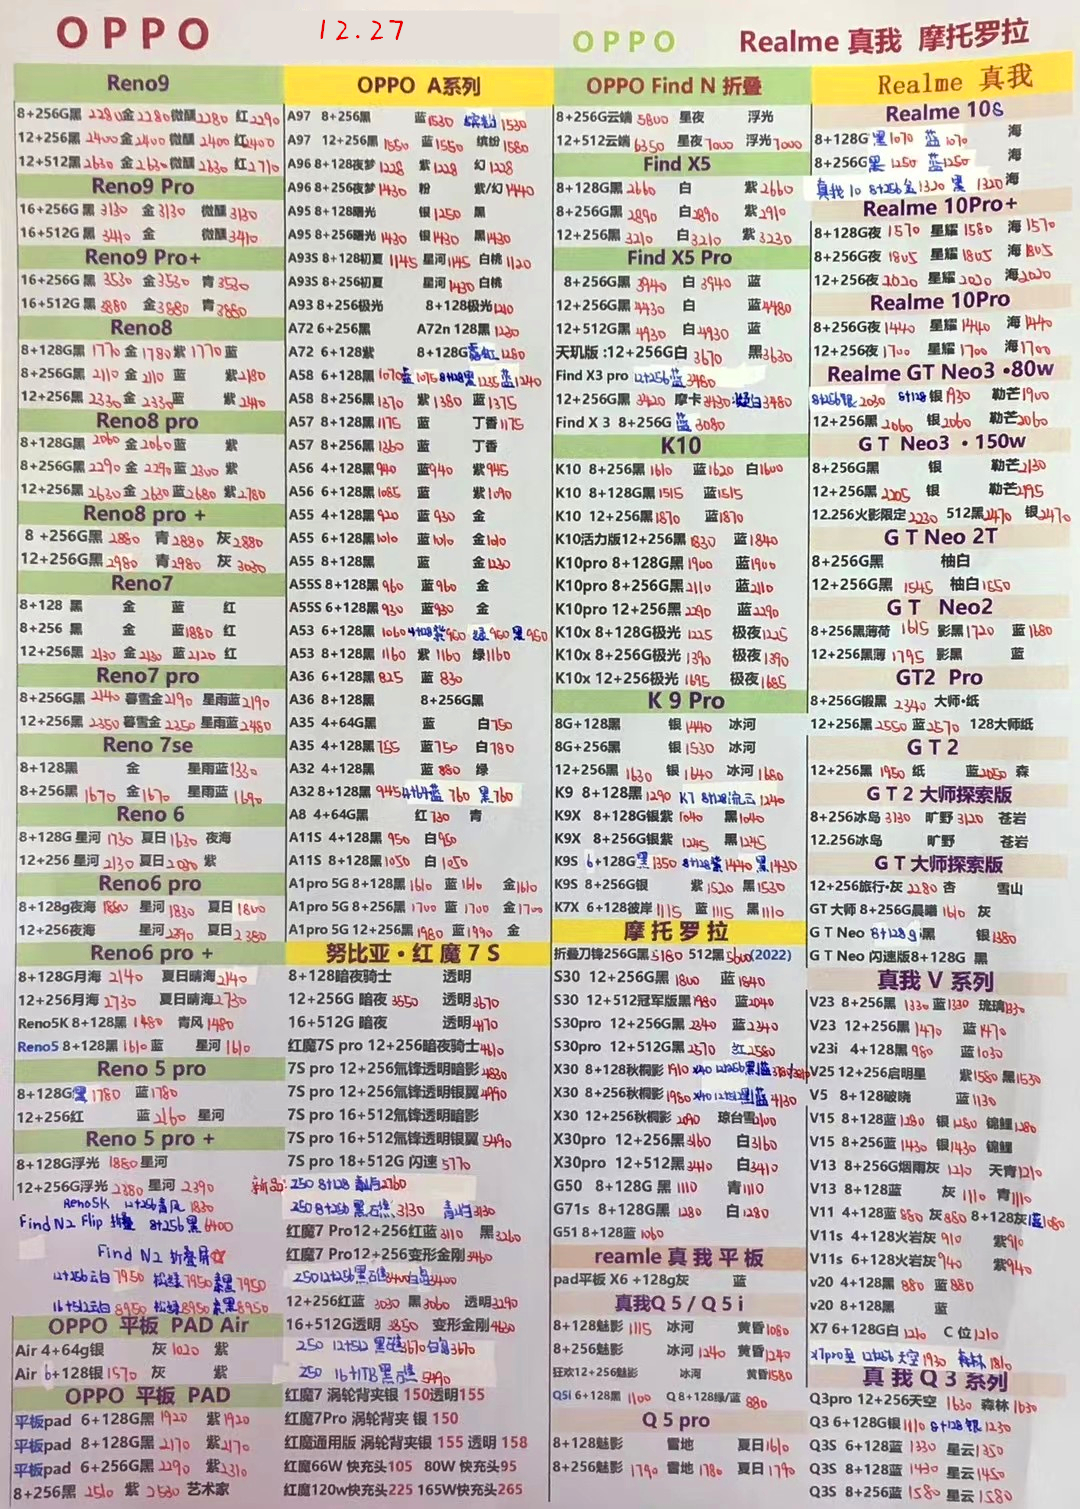 OPPO
12.27
OPPO
Realme 真我 摩托罗拉
Reno9
8+256G黑 2280 金2280 微醺2280 红2290
12+256黑 2400 金2400 微醺2400 红2400
12+512黑 2630 金2630 微醺2630 红2710
Reno9 Pro
16+256G 黑 3130 金3130 微醺3130
16+512G 黑 3410 金 微醺3410
Reno9 Pro+
16+256G 黑 3530 金3530 青3530
16+512G 黑 3880 金3880 青3880
Reno8
8+128G黑 1770 金 1780 紫 1770 蓝
8+256G黑 2110 金 2110 蓝 紫2180
12+256黑 2330 金2330 蓝 紫2440
Reno8 pro
8+128G黑 2060 金2060 蓝 紫
8+256G黑 2290 金 2290 蓝 2300 紫
12+256黑 2630 金 2630 蓝2680 紫2780
Reno8 pro +
8 +256G黑 2880 青 2880 灰2880
12+256G黑 2980 青 2980 灰 3030
Reno7
8+128 黑 金 蓝 红
8+256 黑 金 蓝1880 红
12+256黑 2130 金 2130 蓝 2120 红
Reno7 pro
8+256G黑 2140 暮雪金2190 星雨蓝2190
12+256黑 2350 暮雪金2350 星雨蓝2480
Reno 7se
8+128黑 金 星雨蓝1330
8+256黑 1670 金 1670 星雨蓝1690
Reno 6
8+128G 星河 1730 夏日1630 夜海
12+256 星河 2130 夏日2080 紫
Reno6 pro
8+128g夜海 1880 星河 1830 夏日1800
12+256夜海 星河2390 夏日2380
Reno6 pro +
8+128G月海 2140 夏日晴海2140
12+256月海 2730 夏日晴海2730
Reno5K 8+128黑 1480 青风 1480
Reno5 8+128黑 1610 蓝 星河 1610
Reno 5 pro
8+128G黑 1780 蓝1780
12+256红 蓝2160 星河
Reno 5 pro +
8+128G浮光 1880 星河
12+256G浮光 2380 星河 2390
Reno5K 12+256青风 1830
Find N2 Flip 折叠 8+256黑 6400
Find N2 折叠屏
12+256云白 7950 松绿7950 素黑7950
16+512云白 8950 松绿8950 素黑8950
OPPO 平板 PAD Air
Air 4+64g银 灰 1020 紫
Air 6+128银 1570 灰 紫
OPPO 平板 PAD
平板pad 6+128G黑 1920 紫1920
平板pad 8+128G黑 2170 紫2170
平板pad 6+256G黑 2290 紫2310
8+256黑 2510 紫 2530 艺术家
OPPO A系列
A97 8+256黑 蓝1530 缤纷 1530
A97 12+256黑 1550 蓝1550 缤纷 1580
A96 8+128夜梦 1228 紫 1228 幻 1228
A96 8+256夜梦1430 粉 紫/幻1440
A95 8+128曙光 银 1250 黑
A95 8+256曙光 1430 银1430 黑1430
A93S 8+128初夏 1145 星河1145 白桃 1120
A93S 8+256初夏 星河1430 白桃
A93 8+256极光 8+128极光1210
A72 6+256黑 A72n 128黑1230
A72 6+128紫 8+128G霞红1280
A58 6+128黑 1070 蓝 1075 8+128黑1235 蓝1240
A58 8+256黑 1370 紫 1380 蓝 1375
A57 8+128黑 1175 蓝 丁香1175
A57 8+256黑 1360 蓝 丁香
A56 4+128黑 940 蓝940 紫945
A56 6+128黑1085 蓝 紫1090
A55 4+128黑 920 蓝 930 金
A55 6+128黑1010 蓝1010 金1010
A55 8+128黑 蓝 金1230
A55S 8+128黑 960 蓝960 金
A55S 6+128黑 930 蓝930 金
A53 6+128黑 1060 4+128紫950 绿950 黑950
A53 8+128黑 1160 紫1160 绿1160
A36 6+128黑 825 蓝 830
A36 8+128黑 8+256G黑
A35 4+64G黑 蓝 白750
A35 4+128黑 755 蓝750 白780
A32 4+128黑 蓝 880 绿
A32 8+128黑 945 4+64蓝 760 黑760
A8 4+64G黑 红 730 青
A11S 4+128黑 950 白950
A11S 8+128黑1050 白 1050
A1pro 5G 8+128黑 1610 蓝 1610 金1610
A1pro 5G 8+256黑 1700 蓝 1700 金1700
A1pro 5G 12+256黑 1980 蓝 1990 金
努比亚·红 魔 7 S
8+128暗夜骑士 透明
12+256G 暗夜 3550 透明3670
16+512G 暗夜 透明4170
红魔7S pro 12+256暗夜骑士4610
7S pro 12+256氘锋透明暗影 4830
7S pro 12+256氘锋透明银翼 4990
7S pro 16+512氘锋透明暗影
7S pro 16+512氘锋透明银翼5490
7S pro 18+512G 闪速 5770
新品: Z50 8+128 青山2760
Z50 8+256 黑石礁3130 青山3130
红魔7 Pro12+256红蓝 3110 黑 3260
红魔7 Pro12+256变形金刚3460
Z50 12+256黑石礁3400 白岛3400
12+256红蓝 3030 黑 3060 透明3290
16+512G透明 3850 变形金刚4630
Z50 12+512 黑礁3670 白岛3670
Z50 16+1TB黑石礁 5490
红魔7 涡轮背夹银 150透明155
红魔7Pro 涡轮背夹 银 150
红魔通用版 涡轮背夹银 155 透明 158
红魔66W 快充头105 80W 快充头95
红魔120w快充头225 165W快充头265
OPPO Find N 折叠
8+256G云端 5800 星夜 浮光
12+512云端 6350 星夜 7000 浮光7000
Find X5
8+128G黑2660 白 紫2660
8+256G黑 2890 白2890 紫2910
12+256黑 3210 白3210 紫3230
Find X5 Pro
8+256G黑 3940 白 3940 蓝
12+256G黑4430 白 蓝4480
12+512G黑 4930 白4930 蓝
天玑版 :12+256G白 3670 黑3630
Find X3 pro 12+256蓝 3480
12+256G黑 3420 摩卡3430 凝白3480
Find X 3 8+256G 蓝 3080
K10
K10 8+256黑1610 蓝1620 白1600
K10 8+128G黑1515 蓝1515
K10 12+256黑1870 蓝1870
K10活力版12+256黑1830 蓝 1840
K10pro 8+128G黑1900 蓝1900
K10pro 8+256G黑2110 蓝2110
K10pro 12+256黑2290 蓝2290
K10x 8+128G极光 1225 极夜1225
K10x 8+256G极光 1390 极夜1390
K10x 12+256极光 1695 极夜1685
K 9 Pro
8G+128黑 银 1440 冰河
8G+256黑 银 1530 冰河
12+256黑 1630 银 1640 冰河 1680
K9 8+128黑 1290 K7 8+128流云1240
K9X 8+128G银紫 1040 黑1040
K9X 8+256G银紫 1245 黑1245
K9S 6+128G黑1350 8+128紫1440 黑1430
K9S 8+256G银 紫1520 黑1530
K7X 6+128彼岸 1115 蓝 1115 黑 1110
摩 托 罗 拉
折叠刀锋256G黑5180 512黑5600(2022)
S30 12+256G黑 1800 蓝 1840
S30 12+512冠军版黑1980 蓝2040
S30pro 12+256G黑 2340 蓝2340
S30pro 12+512G黑 2570 红2580
X30 8+128秋桐影 1910 X40 12+256黑蓝
X30 8+256秋桐影 1980 X40 12+512黑蓝4130
X30 12+256秋桐影 2090 琼台雪2100
X30pro 12+256黑3160 白3160
X30pro 12+512黑3410 白3410
G50 8+128G 黑 1110 青1110
G71s 8+128G黑 1280 白 1280
G51 8+128蓝 1060
reamle 真 我 平 板
pad平板 X6 +128g灰 蓝
真我Q 5 / Q 5 i
8+128魅影 1115 冰河 黄昏1080
8+256魅影 冰河 1240 黄昏1240
狂欢12+256魅影 冰河 黄昏1580
Q5i 6+128黑 1100 Q 8+128绿/蓝 880
Q 5 pro
8+128魅影 雪地 夏日1610
8+256魅影 1790 雪地 1780 夏日 1790
Realme 真我
Realme 10S
8+128G 黑1070 蓝1070 海
8+256G黑 1250 蓝1250 海
真我10 8+256金1320 黑 1320 海
Realme 10Pro+
8+128G夜 1570 星耀 1580 海 1570
8+256G夜 1805 星耀1805 海1805
12+256夜 2020 星耀 2020 海2020
Realme 10Pro
8+256G夜1440 星耀1440 海1440
12+256夜 1700 星耀 1700 海1700
Realme GT Neo3 •80w
8+256银 2030 8+128 银1930 勒芒1900
12+256黑 2060 银 2060 勒芒2060
G T Neo3 • 150w
8+256G黑 银 勒芒2130
12+256黑 2205 银 勒芒2195
12.256火影限定 2230 512黑2470 银2470
G T Neo 2T
8+256G黑 柚白
12+256G黑 1545 柚白1550
G T Neo2
8+256黑薄荷 1615 影黑1720 蓝1680
12+256黑薄 1795 影黑 蓝
GT2 Pro
8+256G锻黑 2340 大师·纸
12+256黑 2550 蓝2570 128大师纸
G T 2
12+256黑 1950 纸 蓝2050 森
G T 2 大师探索版
8+256冰岛 3130 旷野 3120 苍岩
12.256冰岛 旷野 苍岩
G T 大师探索版
12+256旅行·灰 2280 杏 雪山
GT 大师 8+256G晨曦1610 灰
G T Neo 8+128g·黑 银1380
G T Neo 闪速版8+128G 黑
真我 V 系列
V23 8+256黑 1330 蓝1330 琉璃1330
V23 12+256黑1470 蓝1470
v23i 4+128黑980 蓝1030
V25 12+256启明星 紫1580 黑1530
V5 8+128破晓 蓝1130
V15 8+128蓝1280 银 1280 锦鲤1280
V15 8+256蓝1430 银1430 锦鲤
V13 8+256G烟雨灰 1210 天青1210
V13 8+128蓝 灰 1110 青1110
V11 4+128蓝 880 灰 880 8+128灰蓝1080
V11s 4+128火岩灰 910 紫910
V11s 6+128火岩灰 940 紫940
v20 4+128黑 880 蓝 880
v20 8+128黑 蓝
X7 6+128G白 1210 C 位1210
X7pro至 12+256天空1930 森林1810
真 我 Q 3 系列
Q3pro 12+256天空 1630 森林 1630
Q3 6+128G银1110 8+128银1230
Q3S 6+128蓝 1330 星云1350
Q3S 8+128蓝 1430 星云1450
Q3S 8+256蓝 1580 星云1580